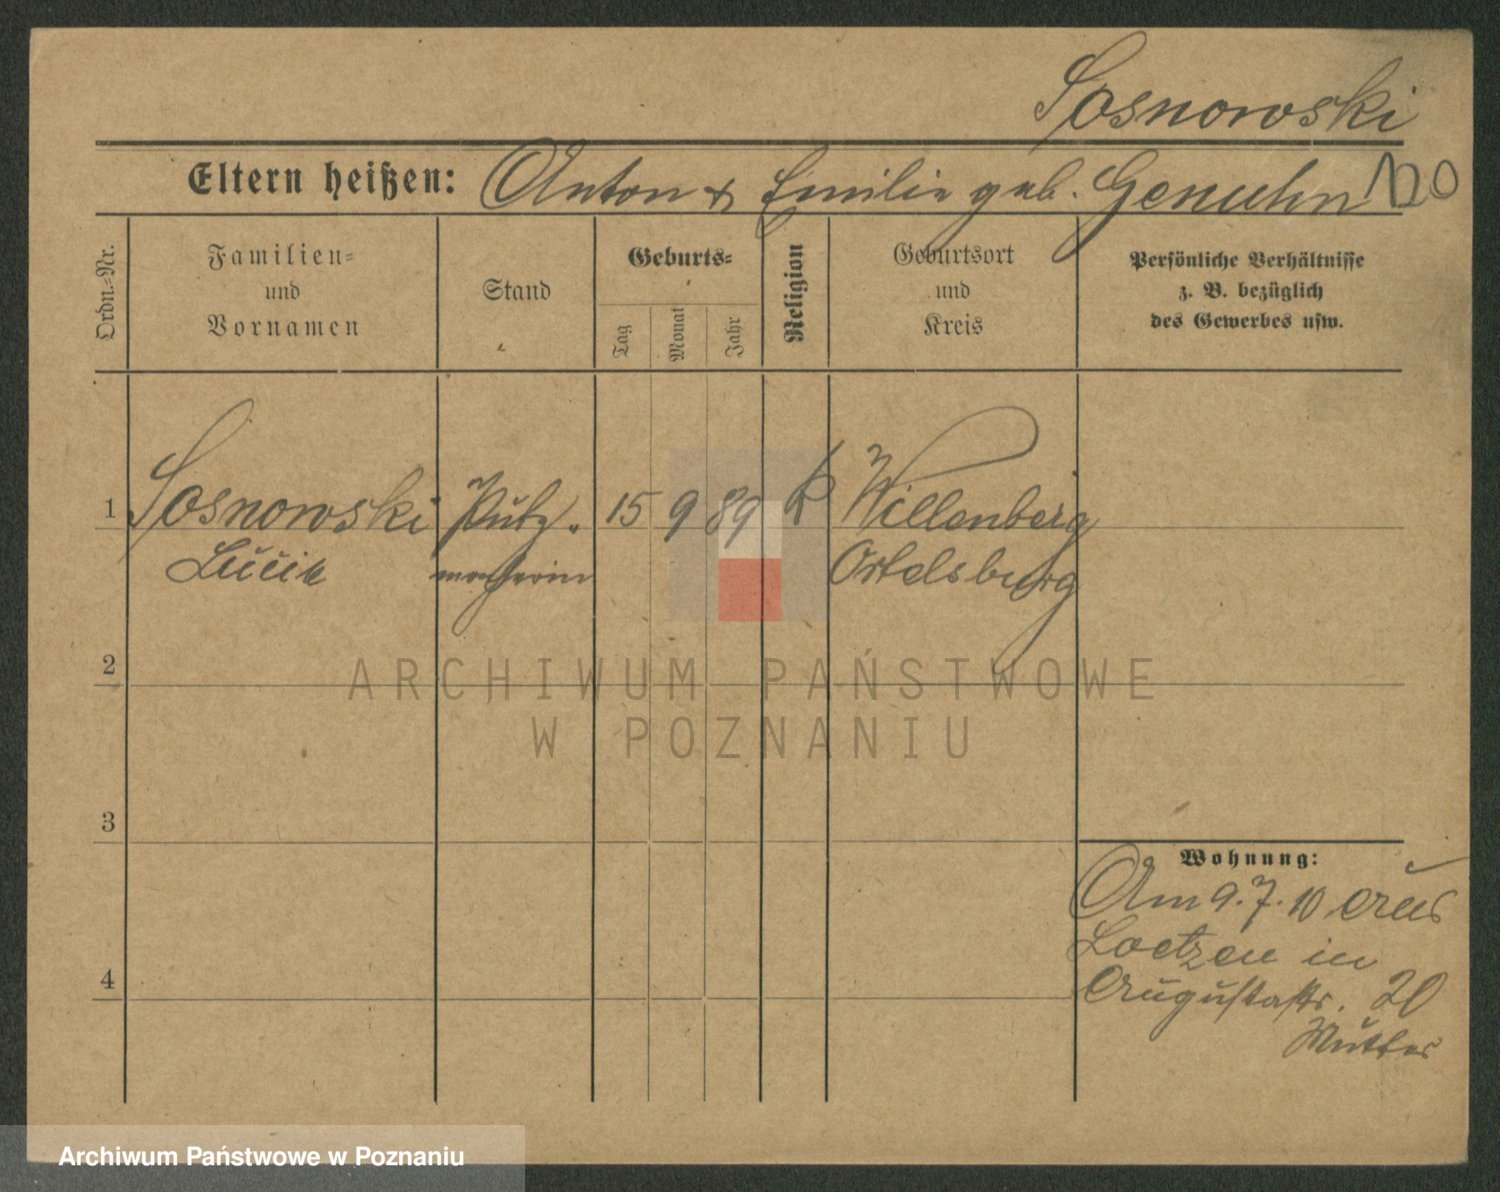 Sosnowski
Eltern heißen: Anton & Emilie geb. Genuhn
120
Ordn.=Nr.
Familien=
und
Vornamen
Stand
Geburts=
Tag
Monat
Jahr
Religion
Geburtsort
und
Kreis
Persönliche Verhältnisse
z. B. bezüglich
des Gewerbes usw.
1 Sosnowski Putz= 15 9 89 k Willenberg
Lucie macherin Ortelsburg
2
3
4
Wohnung:
Am 9.7.10 aus
Loetzen in
Augustastr. 20
Mutter
ARCHIWUM PAŃSTWOWE
W POZNANIU
Archiwum Państwowe w Poznaniu